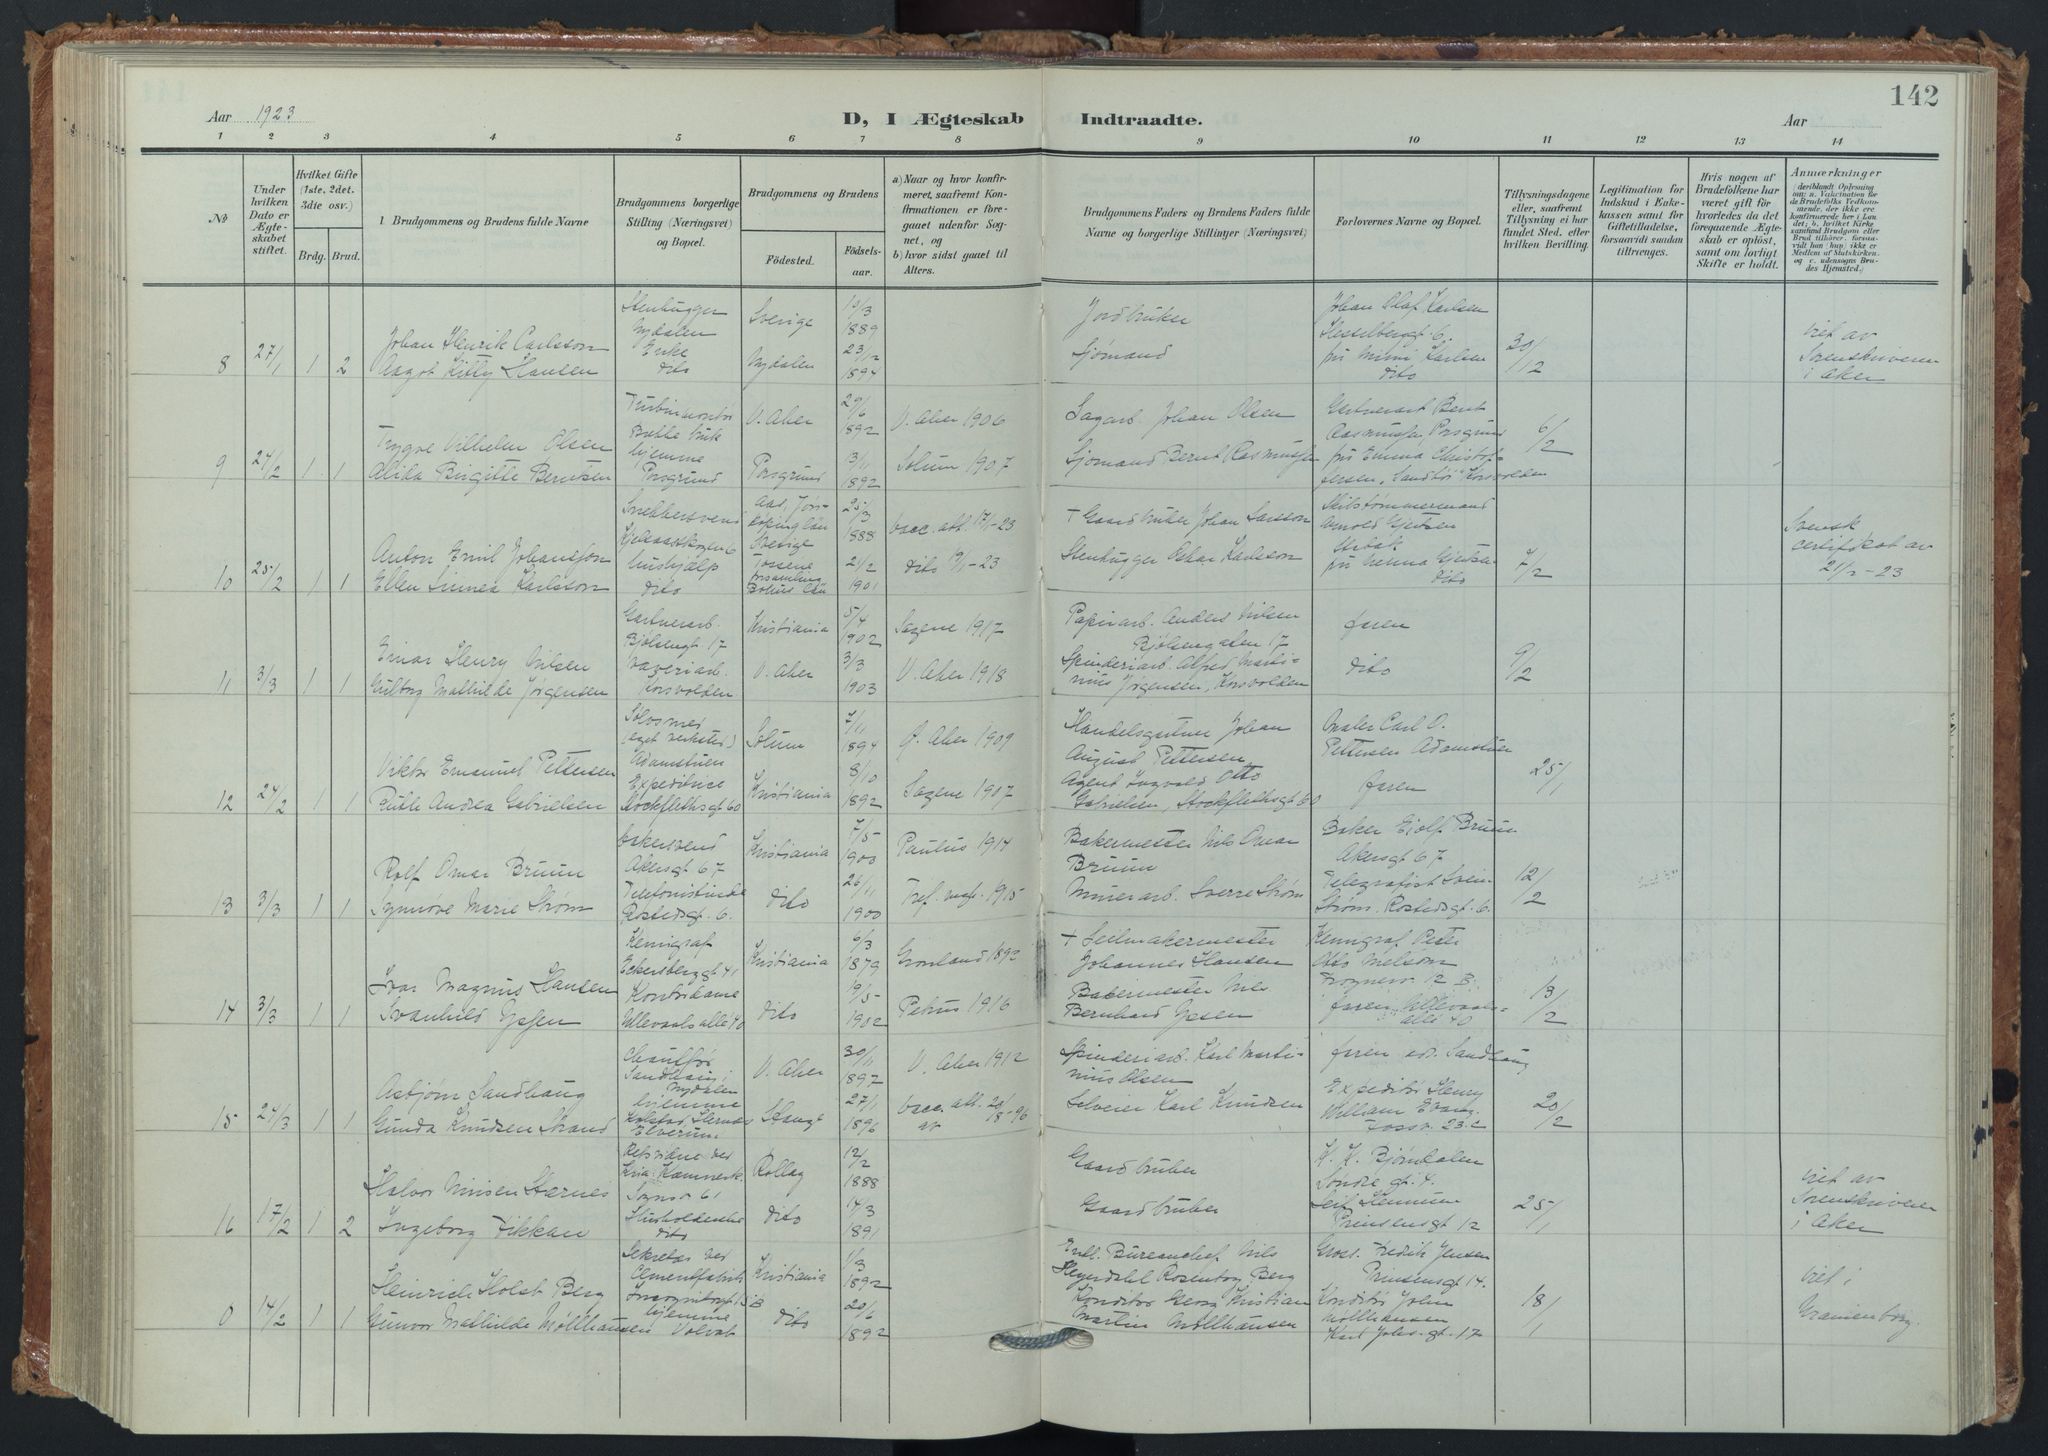 142
Aar 1923
D, I Ægteskab Indtraadte.
Aar
1 2 3 4 5 6 7 8 9 10 11 12 13 14
№
Under hvilken Dato er Ægteskabet stiftet.
Hvilket Gifte (1ste, 2det. 3die osv.)
Brdg. Brud.
1. Brudgommens og Brudens fulde Navne
Brudgommens borgerlige Stilling (Næringsvei) og Bopæl.
Brudgommens og Brudens
Fødested.
Fødselsaar.
a) Naar og hvor konfirmeret, saafremt Konfirmationen er foregaaet udenfor Sognet, og
b) hvor sidst gaaet til Alters.
Brudgommens Faders og Brudens Faders fulde Navne og borgerlige Stillinger (Næringsvei)
Forlovernes Navne og Bopæl.
Tillysningsdagene eller, saafremt Tillysning ei har fundet Sted. efter hvilken Bevilling.
Legitimation for Indskud i Enkekassen samt for Giftetilladelse, forsaavidt saadan tiltrænges.
Hvis nogen af Brudefolkene har været gift før hvorledes da det foregaaende Ægteskab er opløst, samt om lovligt Skifte er holdt.
Anmærkninger
8 27/1 1 2
Johan Henrik Carlsson
Aagot Kitty Hansen
Stenhugger
Nydalen
Enke
dito
Sverige
Nydalen
10/3 1889
23/12 1894
Jordbruker
Sjømand
Johan Olaf Karlsen
Hesselbergt. 6.
fru Mimi Karlsen
dito
30/12
viet av
Sorenskriveren
i Aker
9 24/2 1 1
Trygve Vilhelm Olsen
Alida Birgitte Berntsen
hjemme
Porsgrund
V. Aker
Porsgrund
29/6 1892
3/11 1892
V. Aker 1906
Solum 1907
Sagarb. Johan Olsen
Sjømand Bernt Rasmussen
Gartnerarb Bernt
Rasmussen, Porsgrund
fru Emma Christof-
fersen, Sandbo Korsvolden
6/2
10 25/2 1 1
Anton Emil Johansson
Ellen Linnea Karlsson
Snekkersvend
Kjelsaasskogen 6
hushjælp
dito
Sverige
25/3 1888
2/2 1901
vacc. att. 17/1-23
dito 19/1-23
† Gaardbruker Johan Larsson
Stenhugger Oskar Karlsson
Arnold Gjertsen
dito
7/2
Svensk
certifikat av
21/2-23
11 3/3 1 1
Einar Henry Nilsen
Gulborg Mathilde Jørgensen
Gartnerarb.
Bjølsengt 17
Væveriarb.
Korsvolden
Kristiania
V. Aker
5/4 1902
3/3 1903
Sagene 1917
V. Aker 1918
Papirarb. Anders Nilsen
Bjølsengaten 17
Spinderiarb. Alfred Marti-
nius Jørgensen, Korsvolden
faren
dito
9/2
12 24/2 1 1
Viktor Emanuel Pettersen
Ruth Andrea Gabrielsen
Sølvsmed
(eget verksted)
Adamstuen
Expeditrice
Stockflethsgt 60
Solum
Kristiania
7/11 1894
8/10 1892
Ø. Aker 1909
Sagene 1907
Handelsgartner Johan
August Pettersen
Agent Ingvald Otto
Gabrielsen, Stockflethsgt 60
Maler Carl O.
Pettersen Adamstuen
faren
25/1
13 3/3 1 1
Rolf Omar Bruun
Synnøve Marie Strøm
bakersvend
Akersgt 67
Telefonistinde
Rostedsgt. 6.
Kristiania
dito
7/5- 1900
26/11 1900
Paulus 1914
Tref. mgt. 1915
Bakermester Nils Omar
Bruun
Murerarb. Sverre Strøm
Baker Ejolf Bruun
Akersgt 67
Telegrafist Svein
Strøm. Rostedsgt. 6.
12/2
14 3/3 1 1
Ivar Magnus Hansen
Svanhild Jessen
Kemigraf
Eckersbergsgt 41
Kontordame
Ullevaalsalle 40
Kristiania
dito
6/3 1879
19/5- 1902
Grønland 1892
Petrus 1916
† Seilmakermester
Johannes Hansen
Bakermester Nils
Bernhard Jessen
Kemigraf Peter
Otto Nielson
Frognerv. 12 B.
faren, Ullevaals-
alle 40
13/2
15 24/3 1 1
Asbjørn Sandhaug
Gunda Knudsen Strand
Chauffør
Sandhaug i
Nydalen
hjemme
Elverum
V. Aker
Stange
30/11 1897
27/1 1896
V. Aker 1912
vacc. att. 20/8-96
Spinderiarb. Karl Marti-
nius Olsen
Selveier Karl Knudsen
faren adr. Sandhaug
Expeditør Henry
William Evang.
Fossv. 23 c
20/2
16 17/2 1 2
Halvor Nilsen Stærnes
Ingeborg Fikkan
Sognsv 61
Husholderske
dito
Rollag
dito
12/2 1888
14/3 1891
Gaardbruker
Gaardbruker
K. K. Bjørndalen
Søndre gt. 4.
Leif Hennum
Prinsensgt 12
25/1
viet av
Sorenskriveren
i Aker
0 14/2 1 1
Heinrich Holst Berg
Gunvor Mathilde Møllhausen
Sekretær ved
Cementfabrik
hjemme
Volvat
Kristiania
dito
1/3 1892
20/6 1892
Bureauchef Nils
Heyerdahl Rosenborg Berg
Konditor Georg Kristian
Martin Møllhausen
Gross. Fredrik Jensen
Prinsensgt 14.
Konditor John
Møllhausen
Karl Johs. gt. 17
18/1
viet i
Uranienborg.